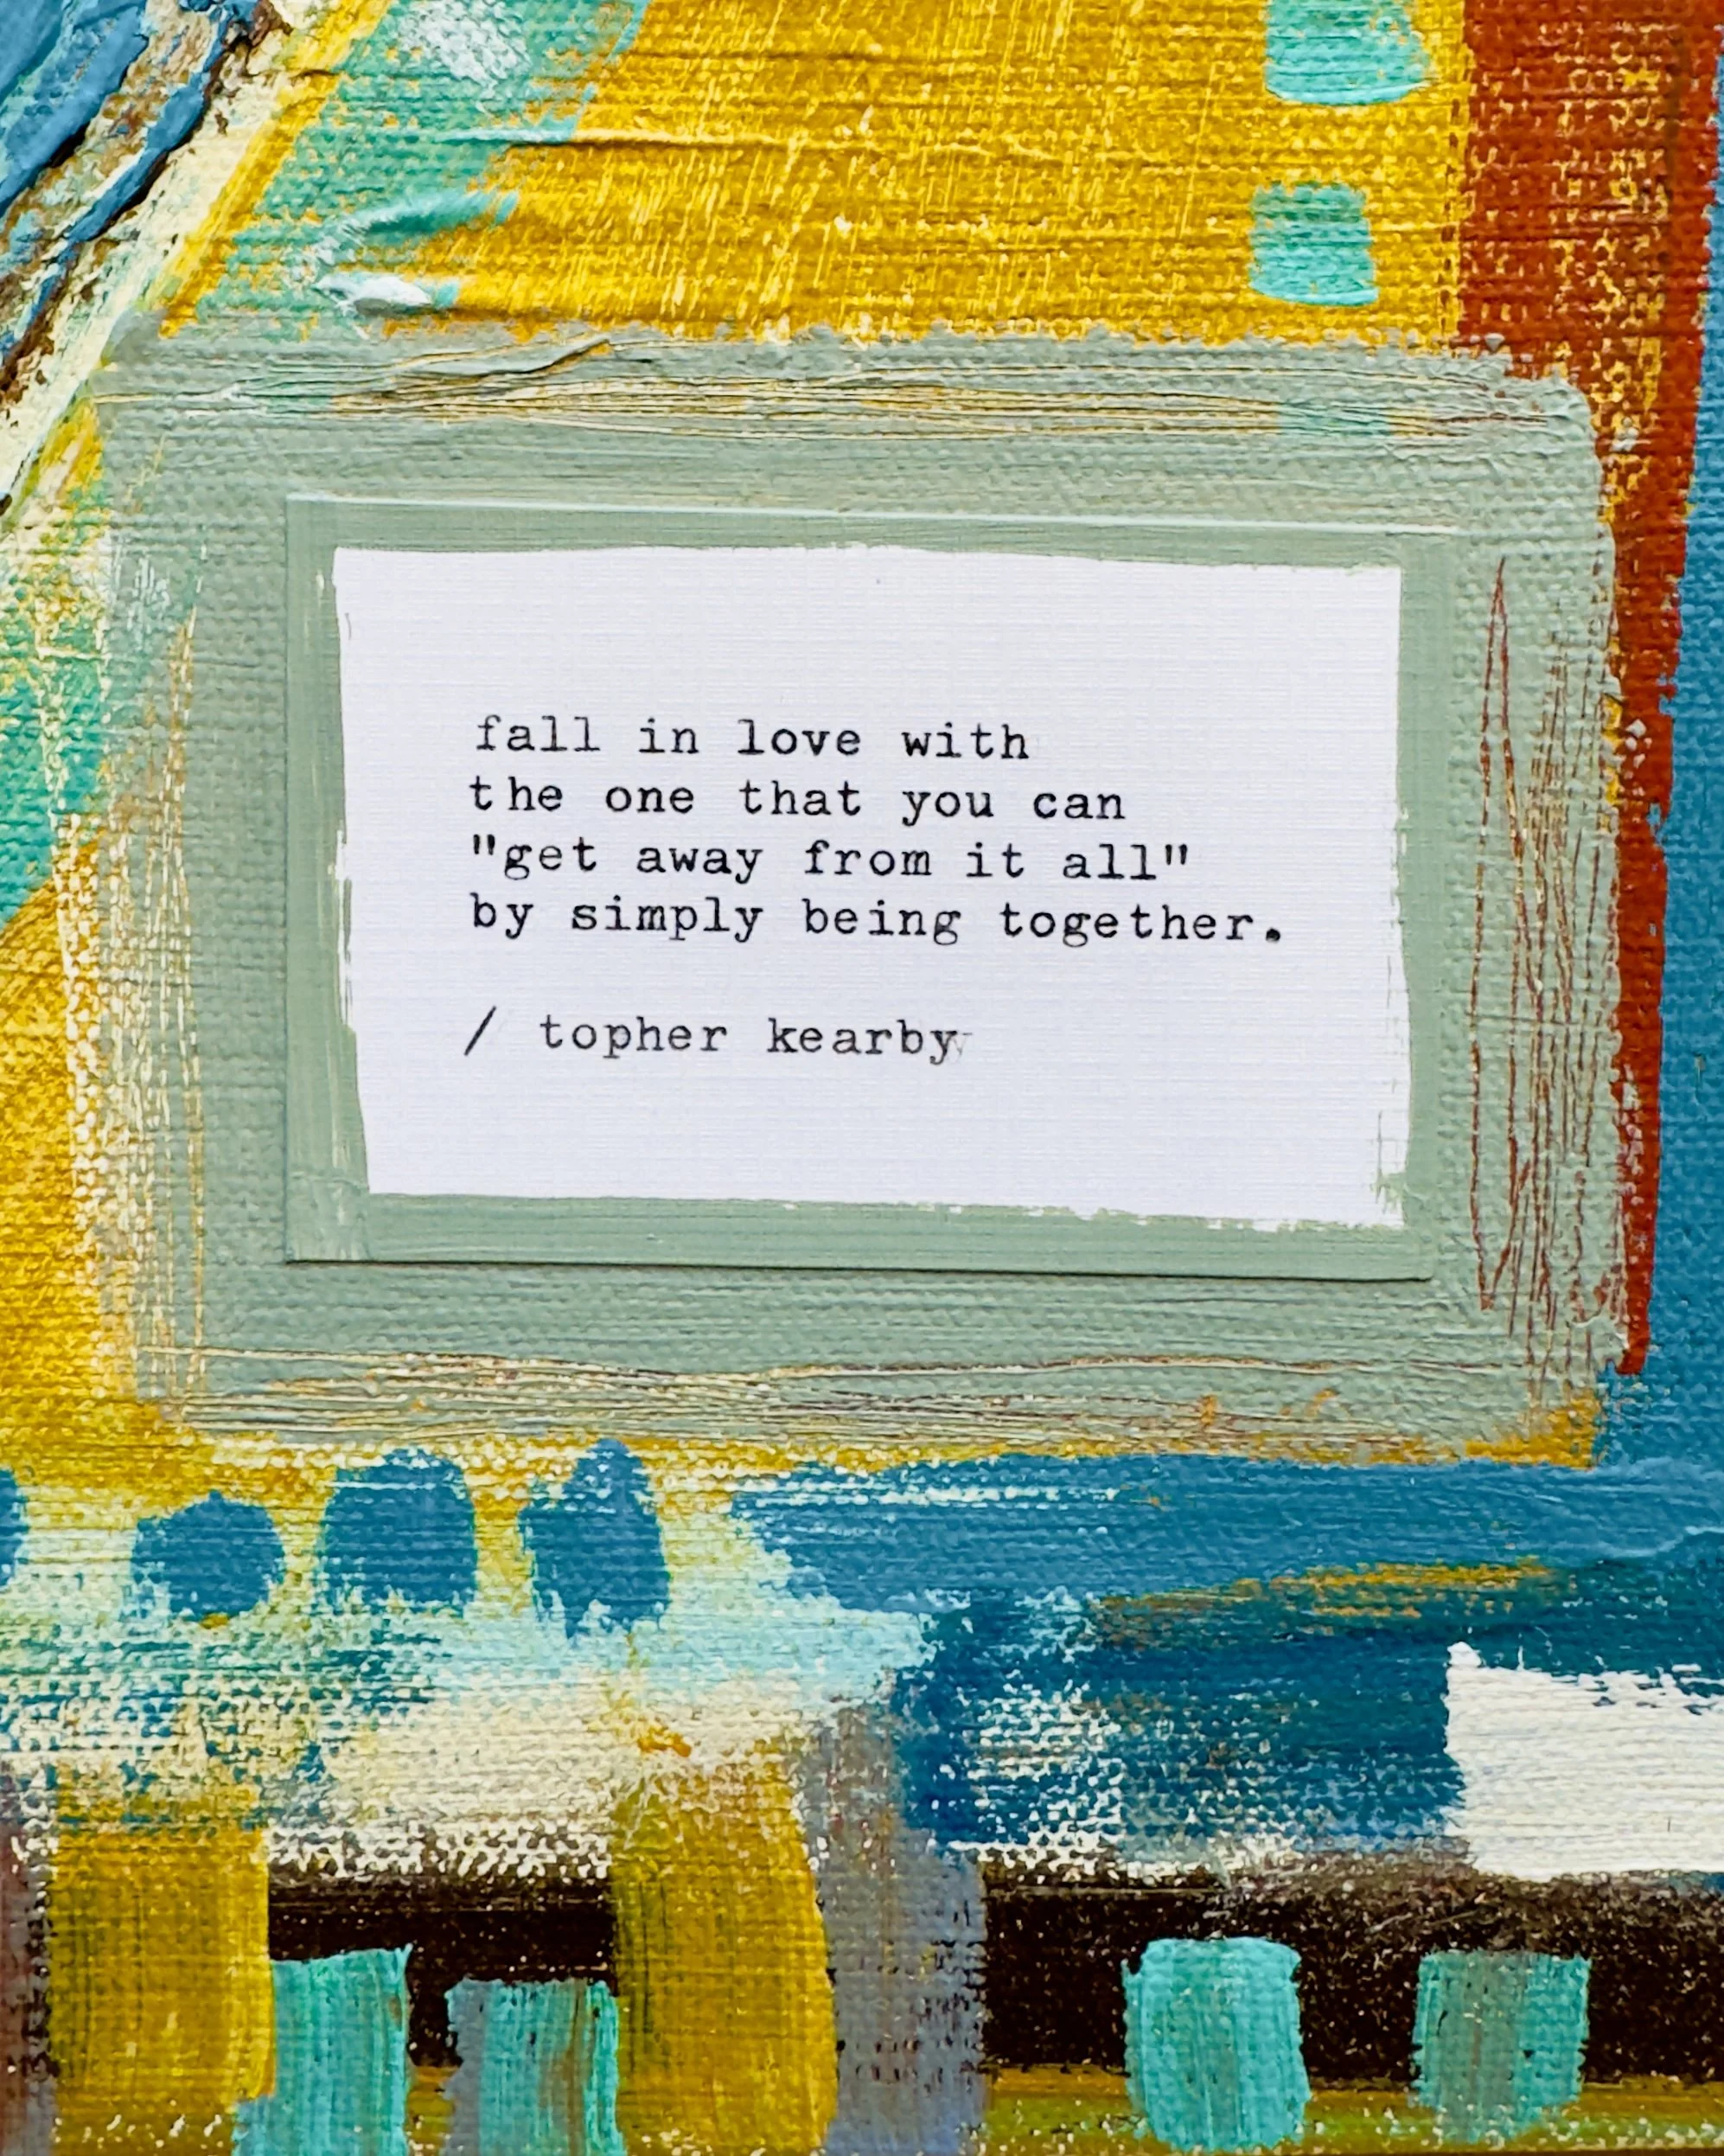 fall in love with
the one that you can
"get away from it all"
by simply being together.
/ topher kearby